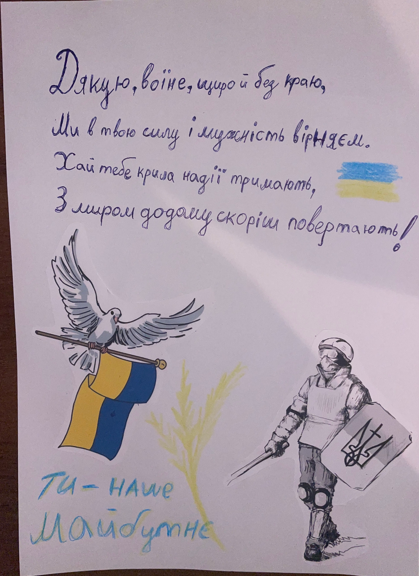 Дякую, воїне, щиро й без краю,
Ми в твою силу і мужність віряєм.
Хай тебе крила надії тримають,
З миром додому скоріш повертають!
Ти - наше
Майбутнє